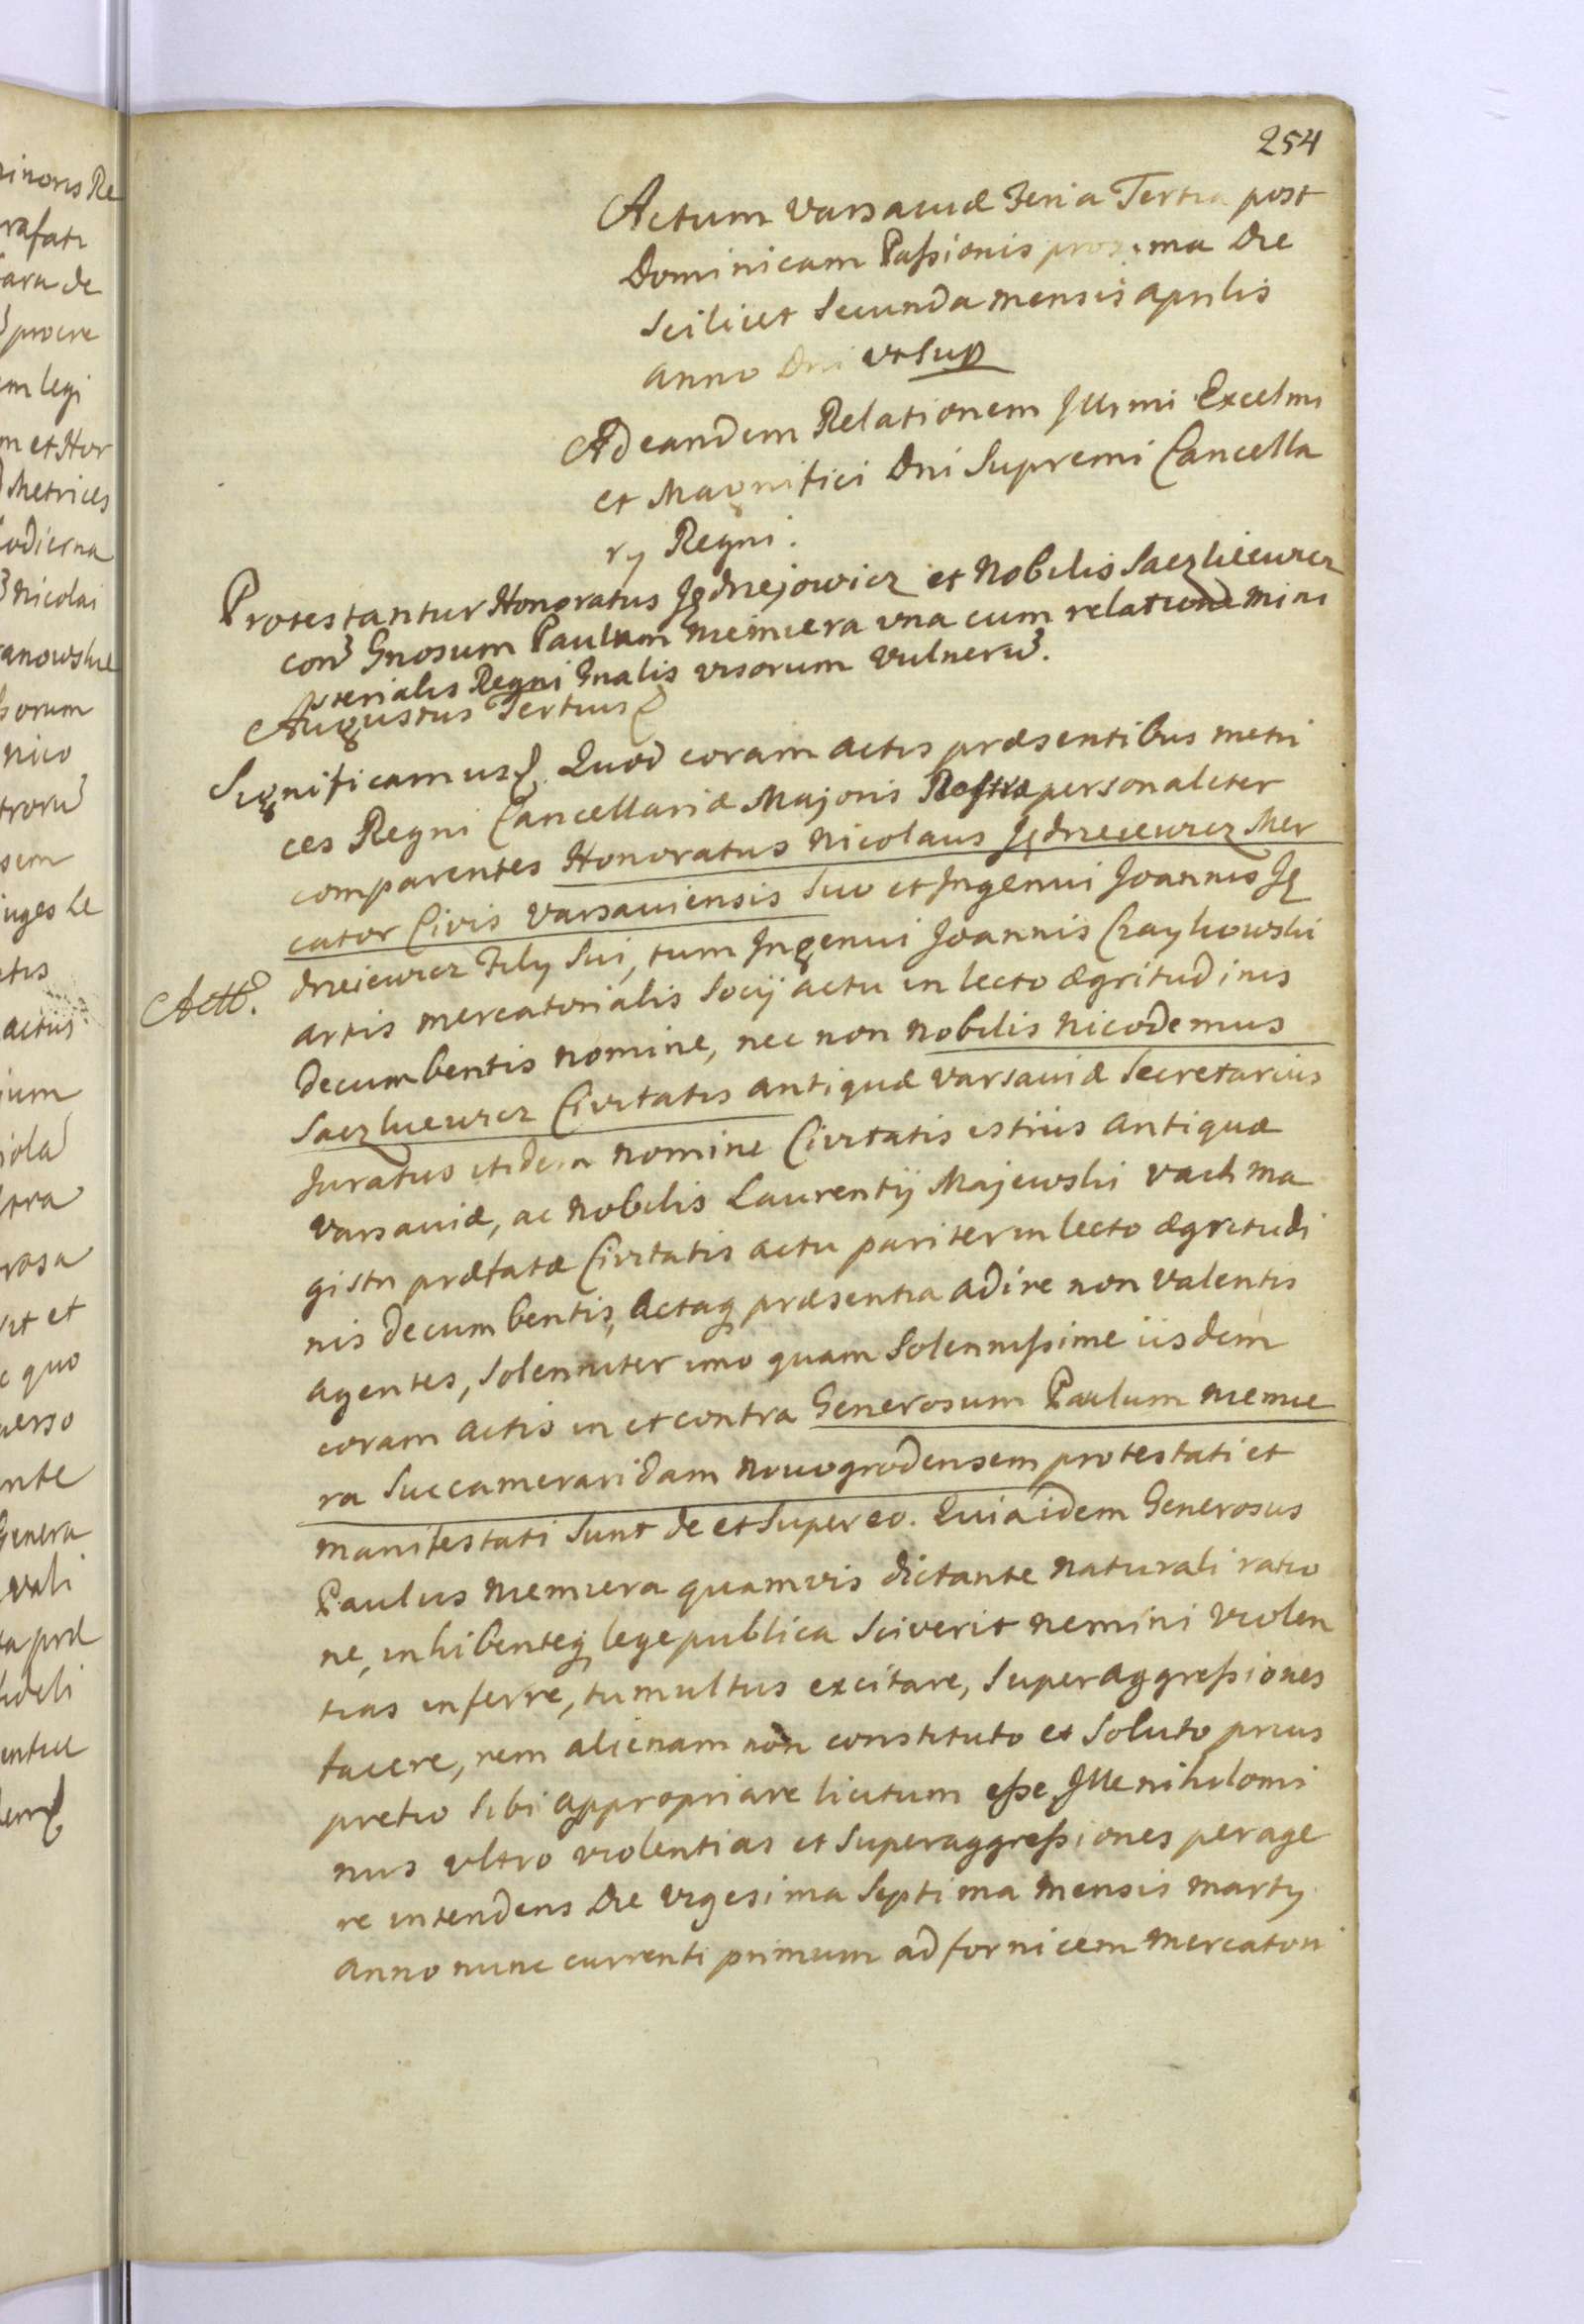 inoris Re
rafati
ara de
procre
em legi
m et Hor
Metrices
odierna
Nicolai
anowskie
orum
nico
sem
iuges Le
actus
ium
rosa
it et
c quo
verso
nte
Genera
vali
a præ
fideli
254
Actum Varsaviæ Feria Tertia post
Dominicam Paſsionis proxima Die
Scilicet Secunda Mensis Aprilis
Anno Dni vt Sup
Ad eandem Relationem Jllrmi Excelmi
et Magnifici Dni Supremi Cancella
rÿ Regni.
Protestantur Honoratus Jędrzejowicz et Nobilis Saczkiewicz
con Gnosum Paulum Niemiera vna cum relatione Mini
sterialis Regni Gnalis visorum Vulneru.
Augustus Tertius
Significamus. Quod coram Actis præsentibus metri
ces Regni Cancellariæ Majoris Nostræ personaliter
comparentes Honoratus Nicolaus Jędrzeiewicz Mer
cator Civis Varsaviensis Suo et Jngenui Joannis Ję
drzeiewicz Filÿ Sui, tum Jngenui Joannis Czaykowski
Actt.
artis mercatorialis Socÿ actu in lecto ægritudinis
decumbentis nomine, nec non Nobilis Nicodemus
Saczkiewicz Civitatis Antiquæ Varsaviæ Secretarius
Juratus itidem nomine Civitatis istius Antiquæ
Varsaviæ, ac Nobilis Laurentÿ Majewski Vachma
gistri præfatæ Civitatis actu pariter in lecto ægritudi
nis decumbentis, Actaq præsentia adire non valentis
agentes, Solenniter imo quam Solenniſsime iisdem
coram actis in et contra Generosum Paulum Niemie
ra Succameraridam Novogrodensem protestati et
manifestati Sunt de et Super eo. Quia idem Generosus
Paulus Niemiera quamvis dictante naturali ratio
ne, inhibenteq lege publica Sciverit nemini violen
tias inferre, tumultus excitare, Superaggreſsiones
facere, rem alienam non constituto et Soluto prius
pretio Sibi appropriare licitum eſse, Jlle nihilomi
nus vltro violentias et Superaggreſsiones perage
re intendens Die vigesima Septima Mensis Martÿ
Anno nunc currenti primum ad fornicem Mercatori